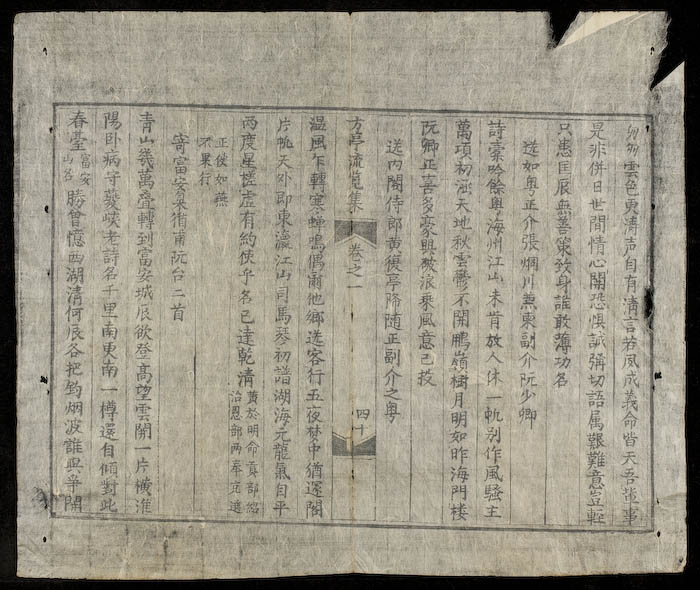 雲色更清声自有清言若風成義命皆天吾輩事
是非併日世間情心閑恐惧誠彌切語属艱難意豈輕
只患匡辰無善策致身誰敢薄功名
送如粤正介張烟川兼柬副介阮少卿
詩豪吟餘與海州江山未肯放人休一帆别作風騷主
萬頃初澄天地秋雲鬱不開鵬嶺樹月明如昨海門楼
阮卿正喜多豪興破浪乘風意已投
送内閣侍郎黄復亭降随正副介之粤
方亭流覧集 卷之一 四十
温風乍轉寒蟬鳴偶爾他鄉送客行五夜梦中猶邃閣
片帆天外即東瀛江山司馬琴初譜湖海元龍氣自平
两度星槎虚有約使乎名已達乾清 黄於明命貢部紹治恩部两奉充遠
正使如燕不果行
寄富安 阮台二首
青山幾萬叠轉到富安城辰欲登高望雲開一片横淮
陽卧病守 峡老詩名千里南更南一樽還自傾對此
春臺富安山名勝曾憶西湖清何辰各把釣烟波誰與争閒